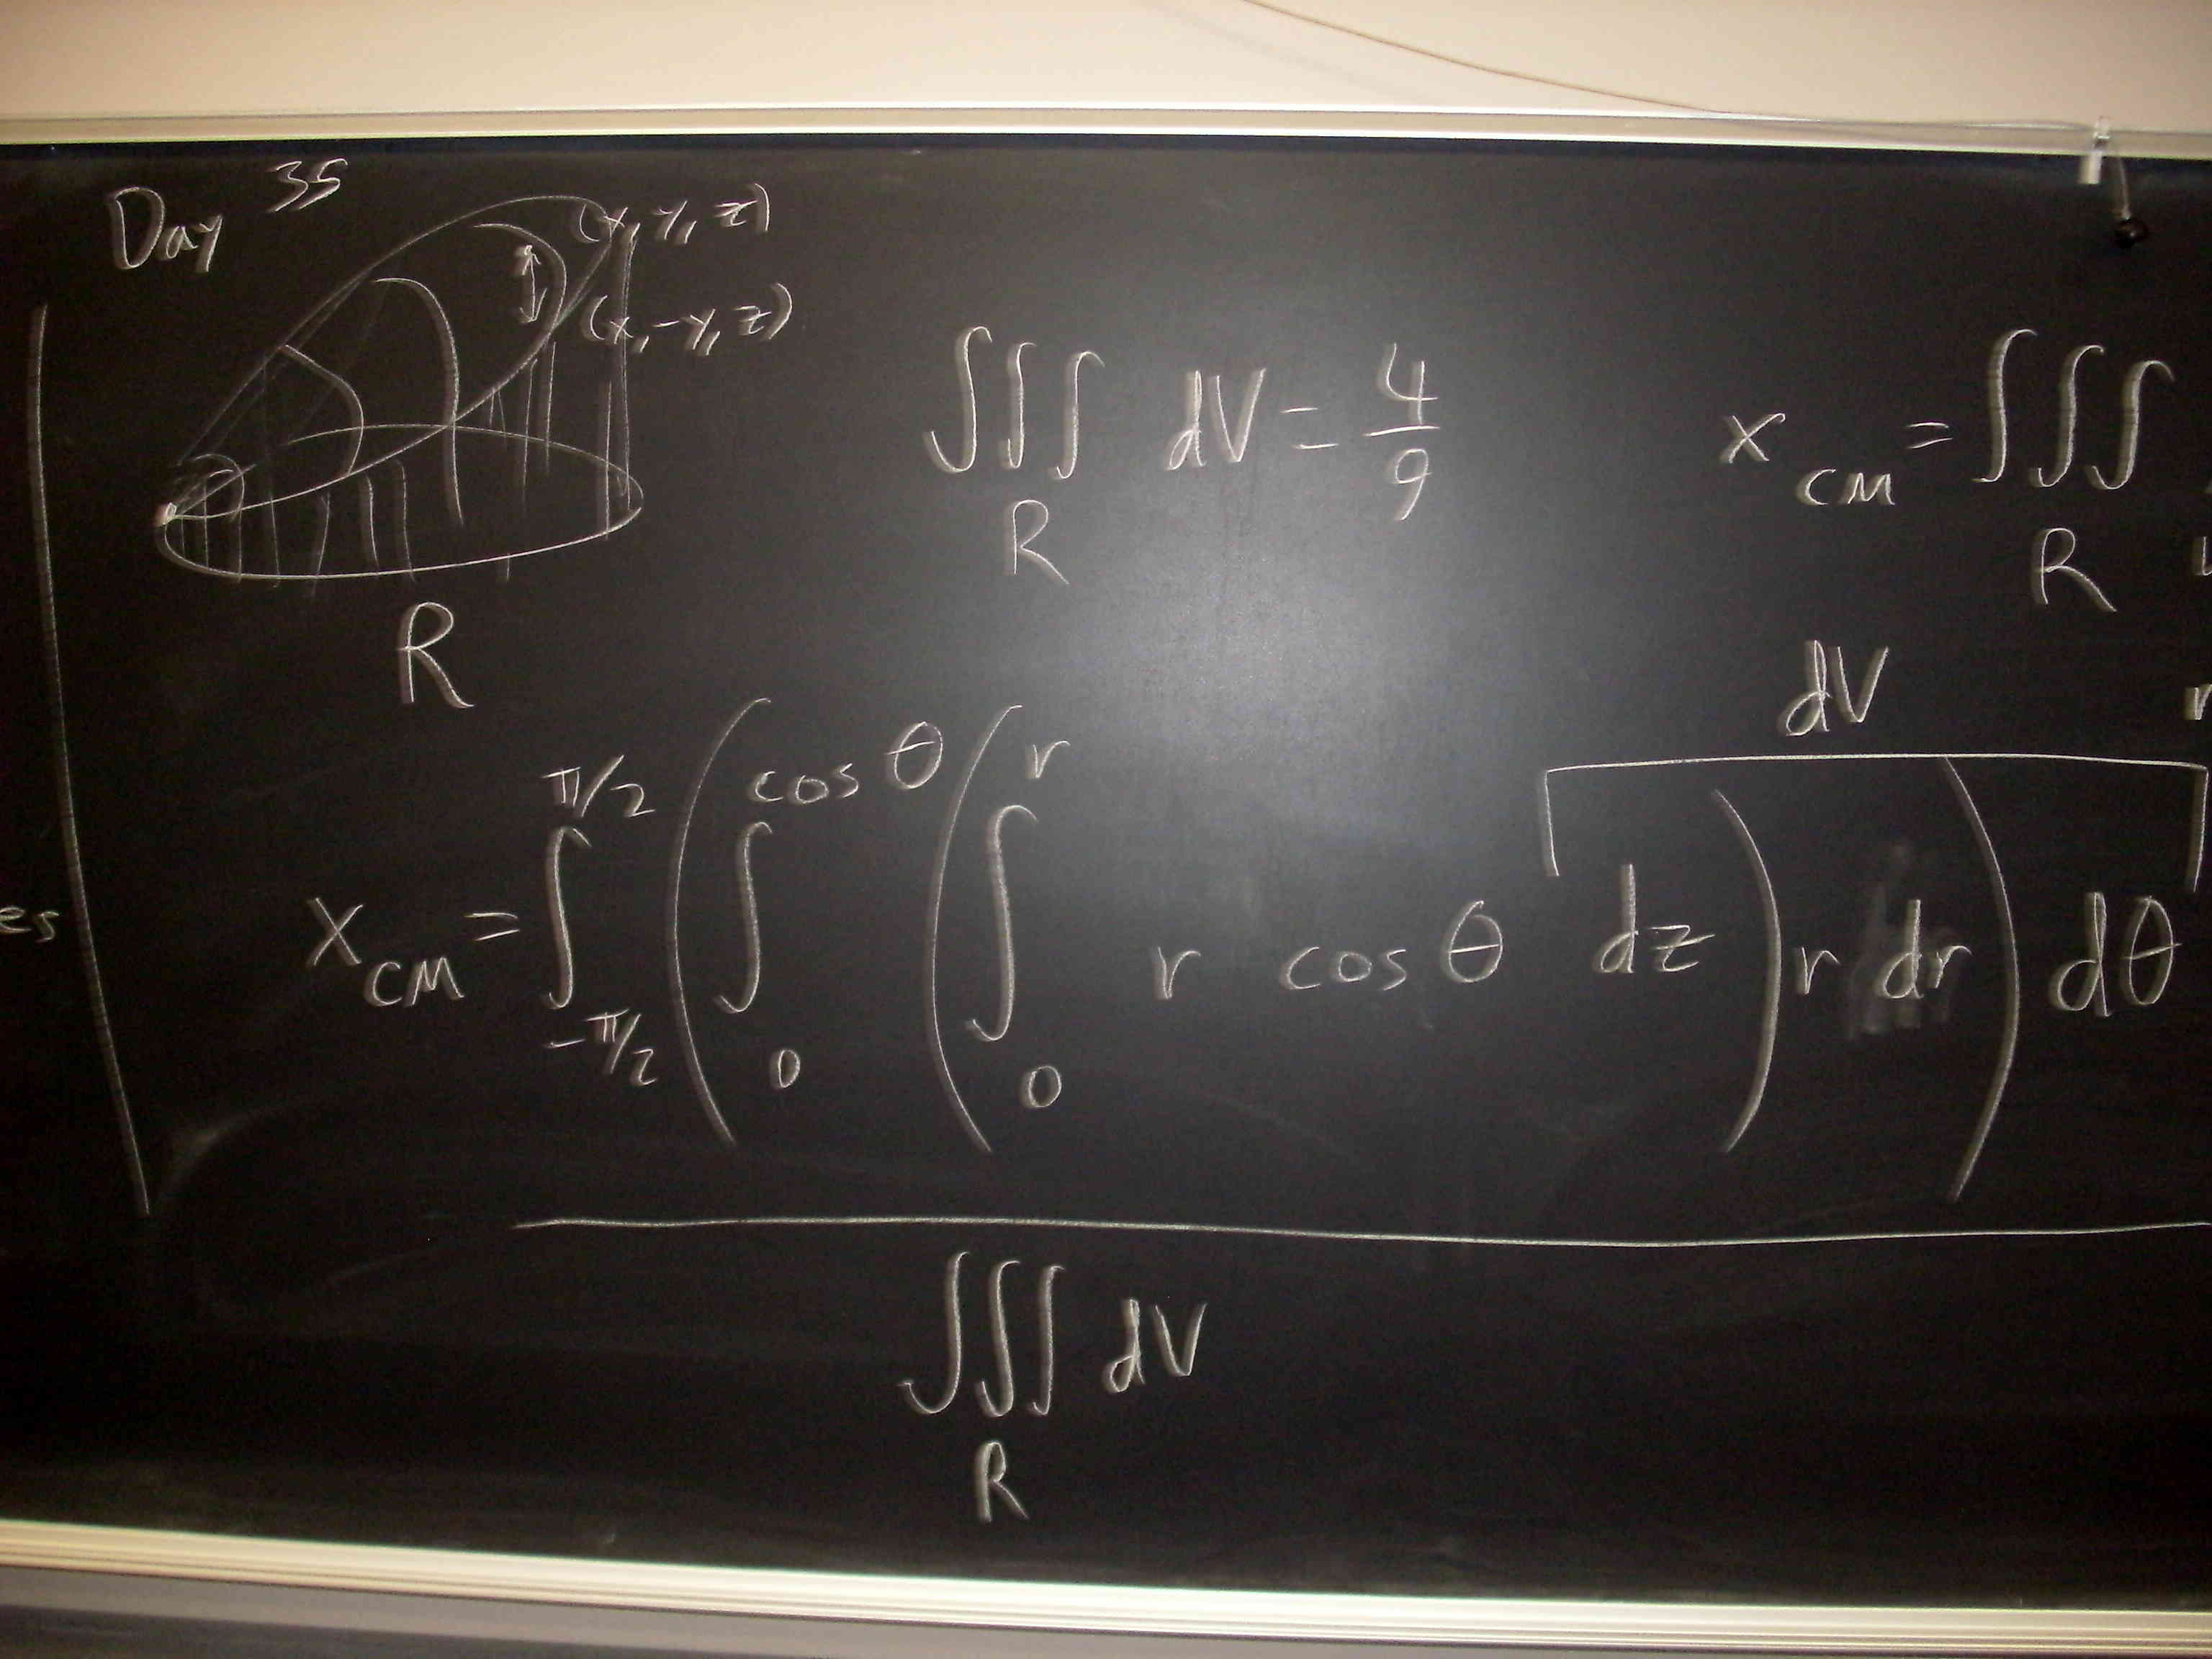 Day 35
(x, y, z)
(x, -y, z)
R
∭ dV = 4/9
R
x_CM = ∭
R
dV
x_CM = ∫_{-π/2}^{π/2} ( ∫_0^{cos θ} ( ∫_0^r r cos θ dz ) r dr ) dθ
∭ dV
R
es